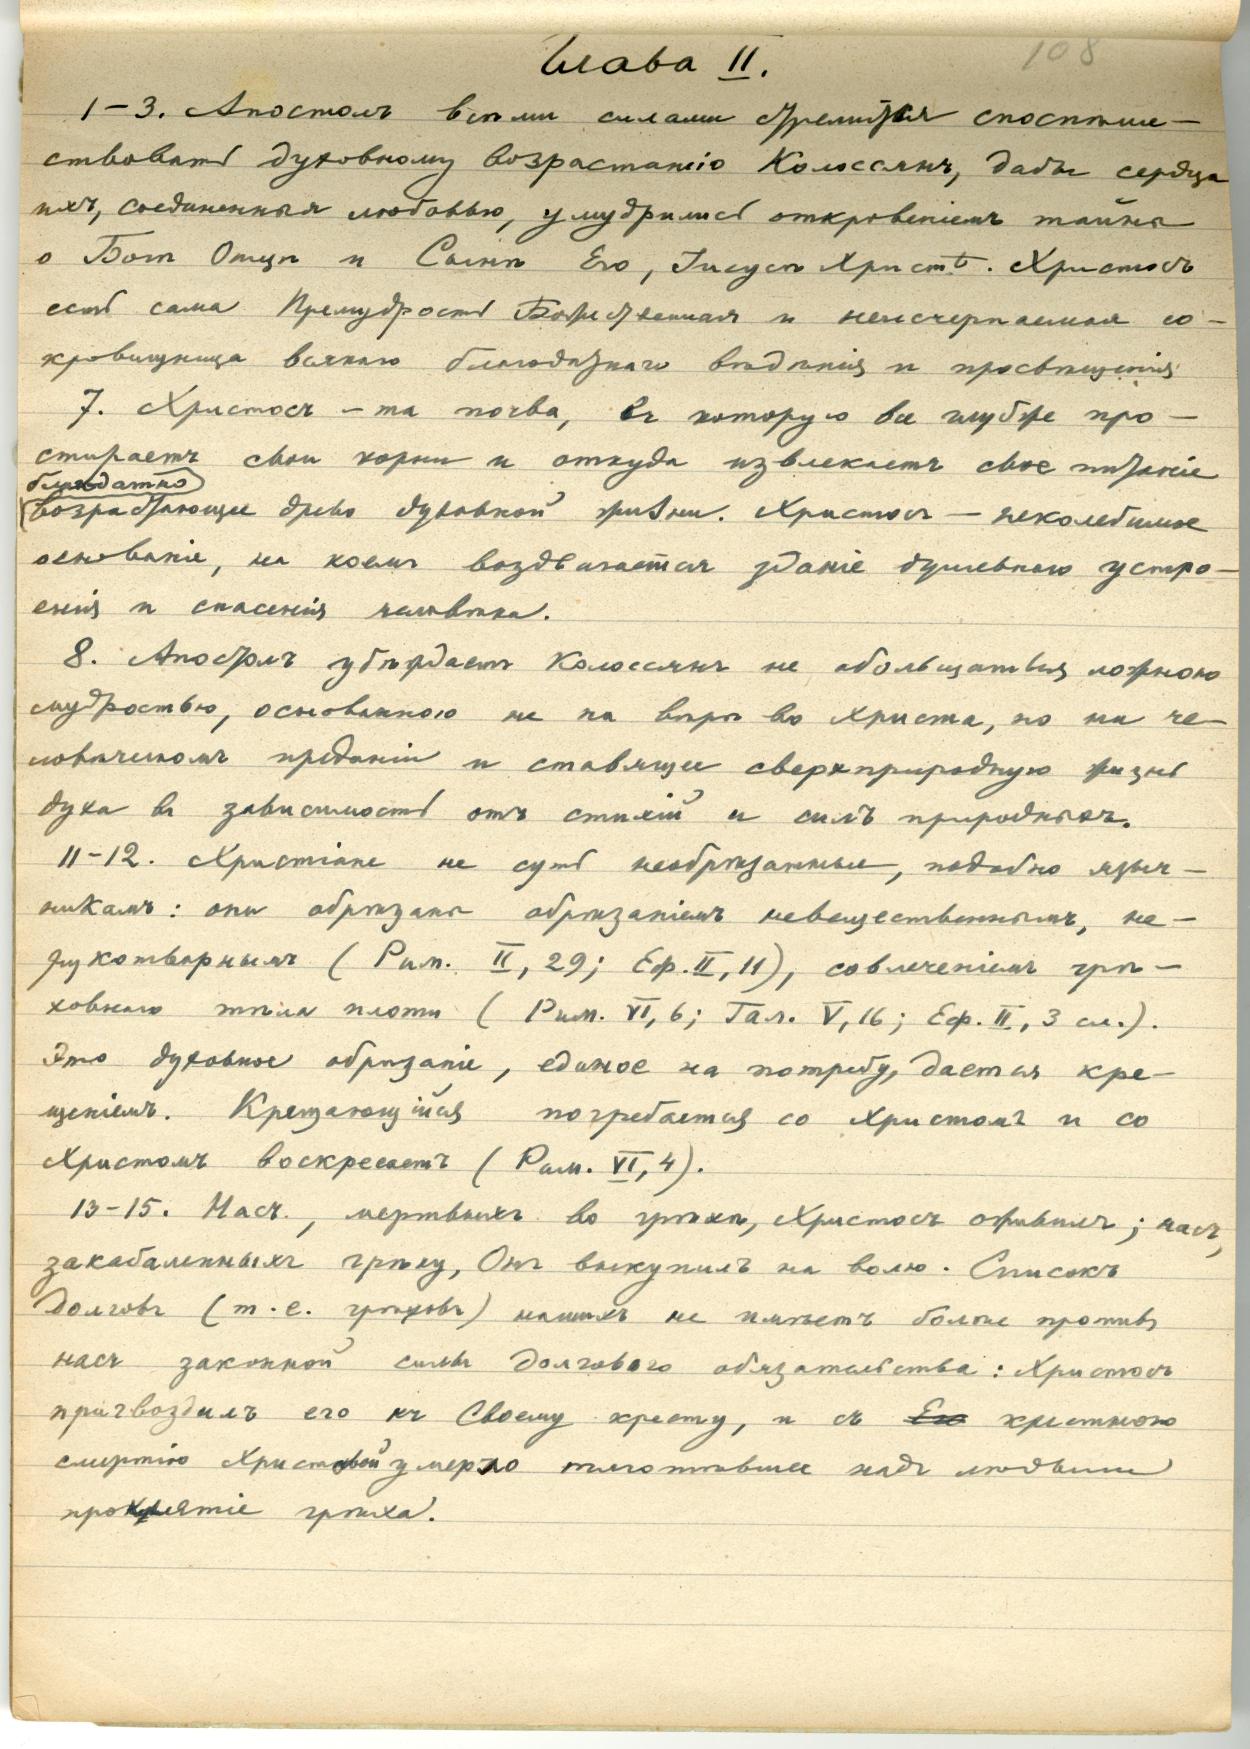 108
Глава II.
1–3. Апостолъ всѣми силами стремится споспѣше-
ствовать духовному возрастанію Колоссянъ, дабы сердца
ихъ, соединенныя любовью, умудрились откровеніемъ тайны
о Богѣ Отцѣ и Сынѣ Его, Іисусѣ Христѣ. Христосъ
есть сама Премудрость Божественная и неисчерпаемая со-
кровищница всякаго благодатнаго вѣдѣнія и просвѣщенія
7. Христосъ – та почва, въ которую все глубже про-
стираетъ свои корни и откуда извлекаетъ свое питаніе
благодатно
возрастающее древо духовной жизни. Христосъ – неколебимое
основаніе, на коемъ воздвигается зданіе душевнаго устро-
енія и спасенія человѣка.
8. Апостолъ убѣждаетъ Колоссянъ не обольщаться ложною
мудростью, основанною не на вѣрѣ во Христа, но на че-
ловѣческомъ преданіи и ставящее сверхприродную жизнь
духа въ зависимость отъ стихій и силъ природныхъ.
11–12. Христіане не суть необрѣзанные, подобно языч-
никамъ: они обрѣзаны обрѣзаніемъ невещественнымъ, не-
рукотворнымъ (Рим. II, 29; Еф. II, 11), совлеченіемъ грѣ-
ховнаго тѣла плоти (Рим. VI, 6; Гал. V, 16; Еф. II, 3 сл.).
Это духовное обрѣзаніе, единое на потребу, дается кре-
щеніемъ. Крещающійся погребается со Христомъ и со
Христомъ воскресаетъ (Рим. VI, 4).
13–15. Насъ, мертвыхъ во грѣхѣ, Христосъ оживилъ; насъ,
закабаленныхъ грѣху, Онъ выкупилъ на волю. Списокъ
долговъ (т.е. грѣховъ) нашихъ не имѣетъ болѣе противъ
насъ законной силы долгового обязательства: Христосъ
пригвоздилъ его къ Своему кресту, и съ Его крестною
смертію Христовой умерло тяготѣвшее надъ людьми
проклятіе грѣха.